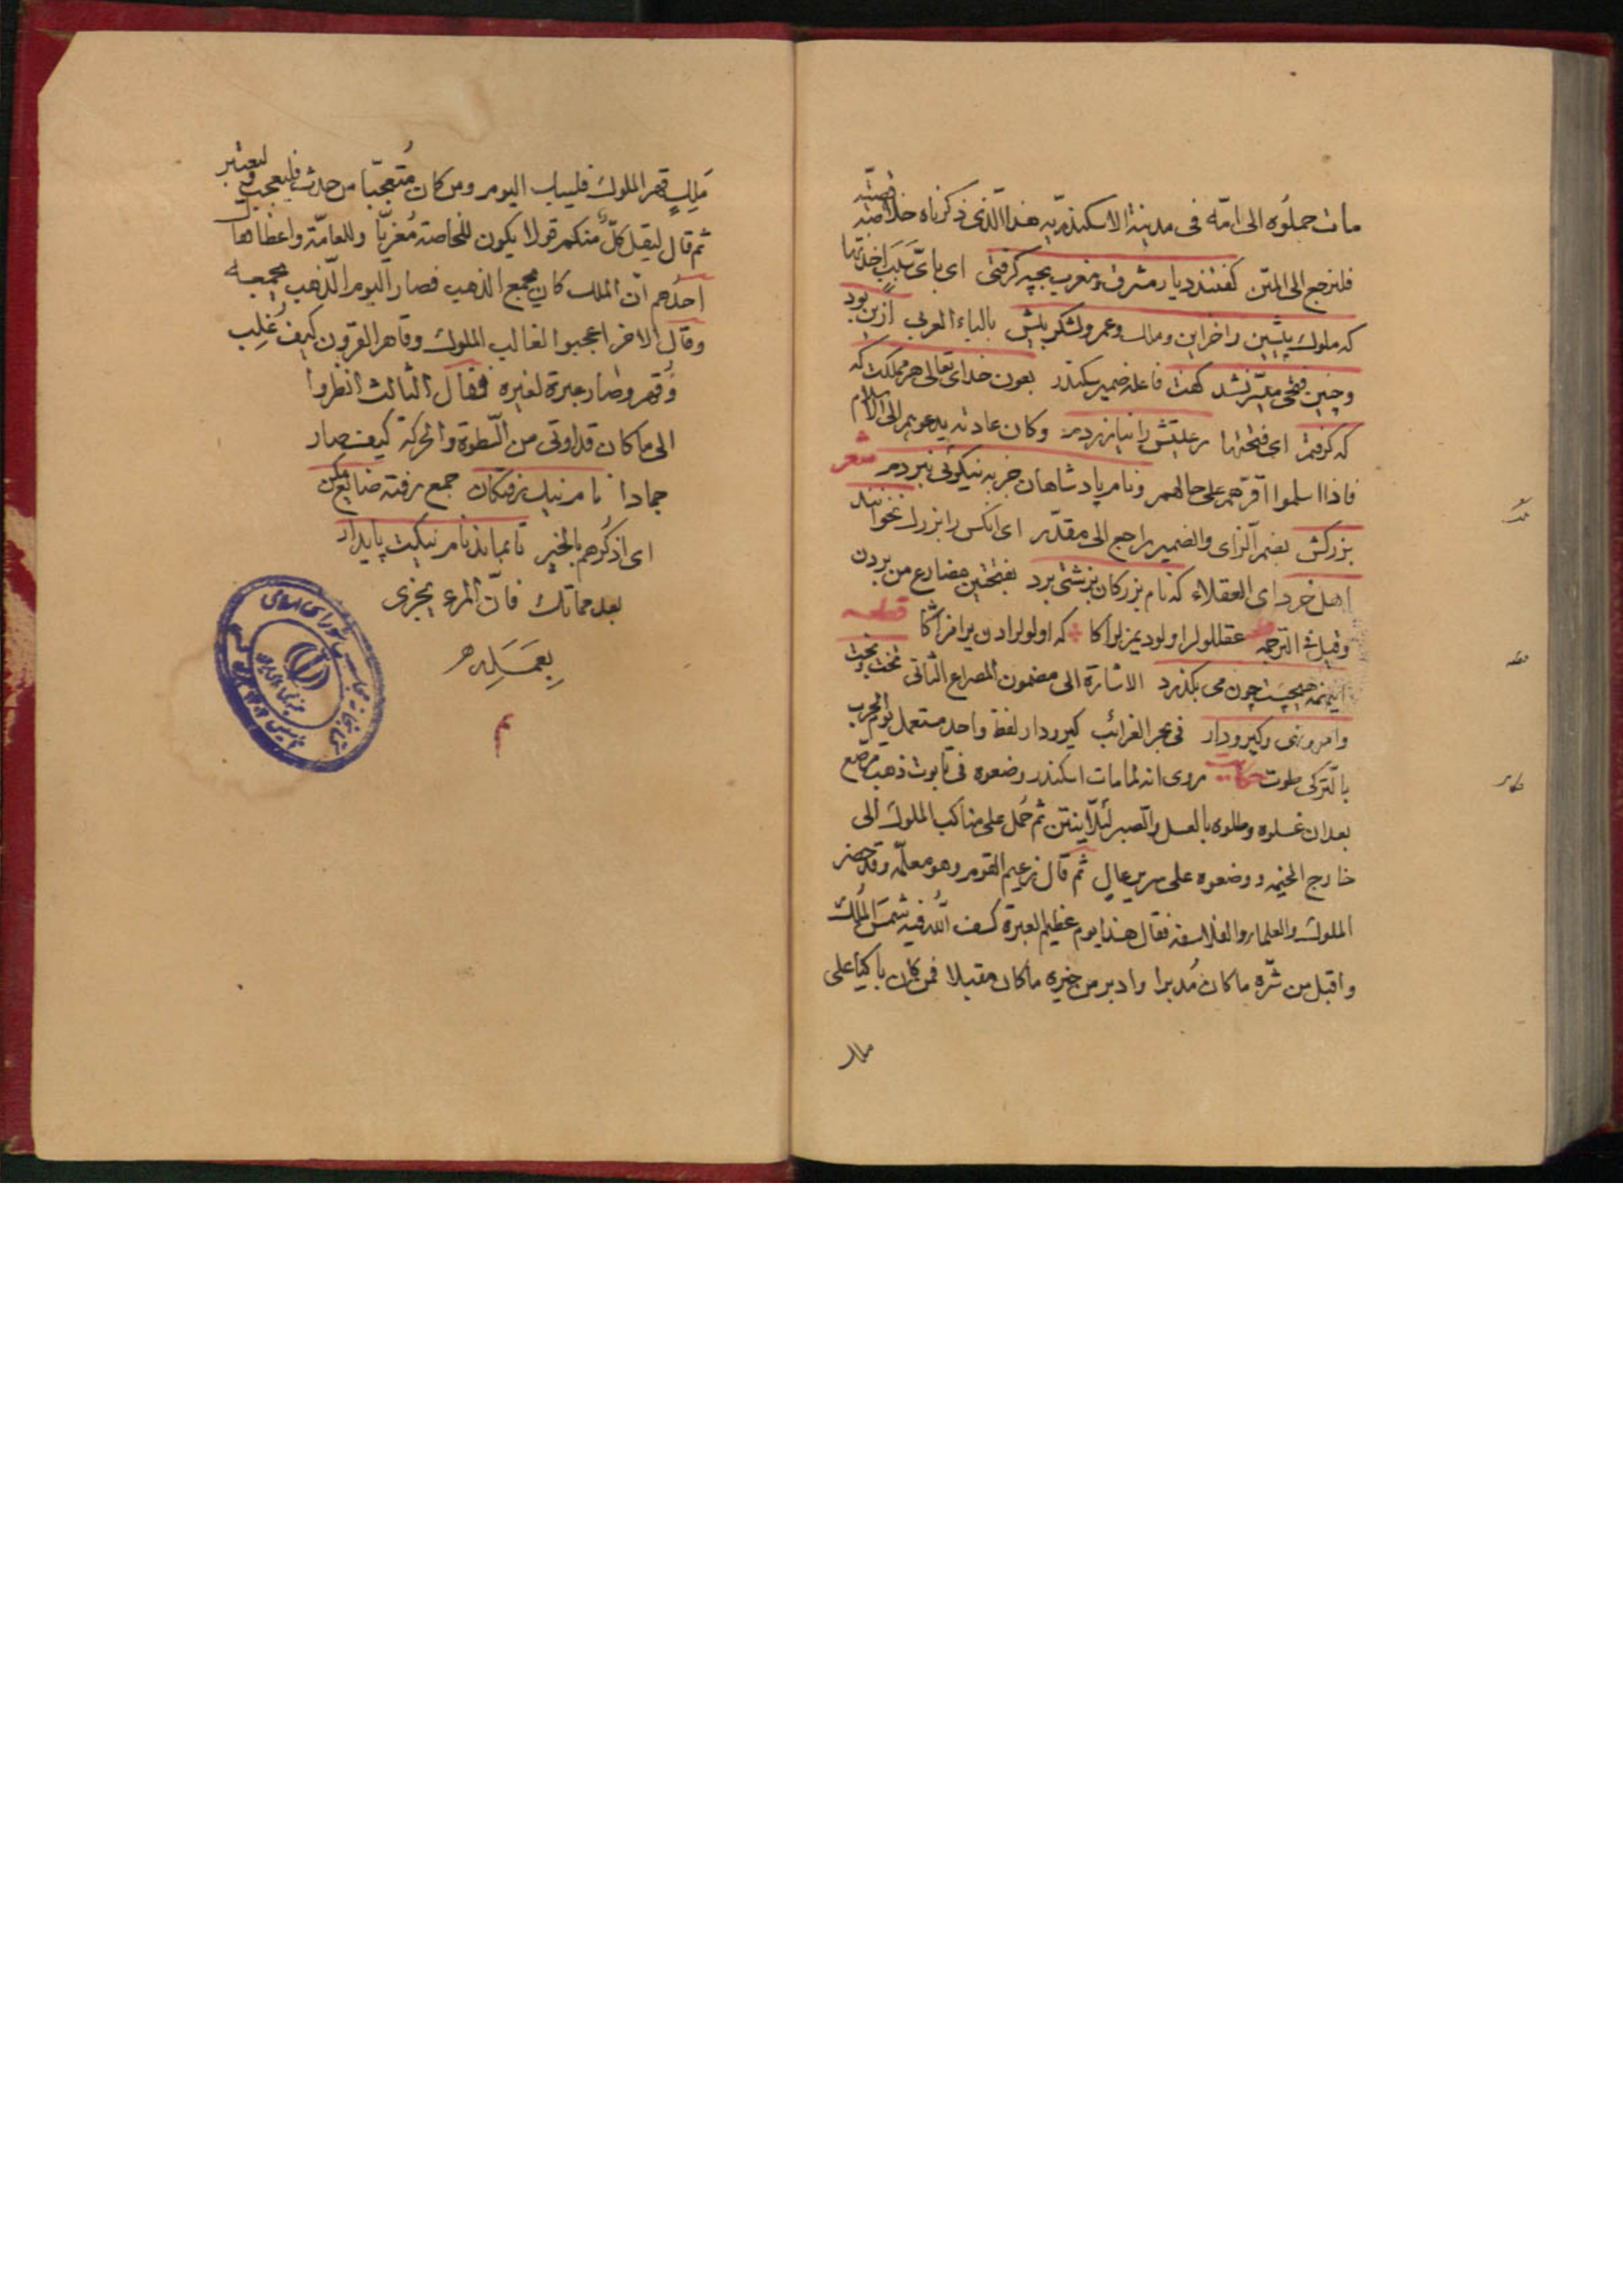 مات حملوه الى امّه فى مدينة الاسكندريه هذا الذى ذكرناه خلاصة قصّته
فلنرجع الى المتن كفتند ديار مشرق ومغرب بچه كرفتى اى باىّ سبب اخذتها
كه ملوك پيشين را خزاين ومال وعمر ولشكر بيش بالباء العربى ازين بود
وچنين فتحى ميسّر نشد كفت فاعله ضمير سكندر بعون خداى تعالى هر مملكت كه
كه كرفتم اى فتحتها رعيتش را نيازردم وكان عادته يدعوهم الى الاسلام
فاذا اسلموا اقرّهم على حالهم ونام پادشاهان جز به نيكوئى نبردم شعر
بزركش بضم الزاى والضمير راجع الى مقدّر اى انكس را بزرك نخوانند
اهل خرد اى العقلاء كه نام بزركان بزشتى برد بفتحتين مضارع من بردن
وقيل فى الترجمه عقللولر اولو ديمزلر اكا كه اولولر ادن يرامز اكا قطعه
اينهمه هيچست چون مى بكذرد الاشارة الى مضمون المصراع الثانى تخت وبخت
وامرونهى وكيرودار فى بحر الغرائب كيرودار لفظ واحد مستعمل يوم الحرب
بالتركى حكايت روى انه لما مات اسكندر وضعوه فى تابوت ذهب مرصّع
بعد ان غسلوه وطلوه بالعسل والصبر لئلّا ينتن ثم حُمل على مناكب الملوك الى
خارج الخيمه ووضعوه على سرير عال ثم قال زعيم القوم وهو معلّمه وقد حضر
الملوك والعلماء والفلاسفه فقال هذا يوم عظيم العبرة كسف الله فيه شمس المُلك
واقبل من شرّه ما كان مُدبرا وادبر من خيره ما كان مقبلا فمن كان باكيا على
ملك
مَلِكٍ قهر الملوك فليبك اليوم ومن كان مُتعجّبا من حدث فليعجب وليعتبر
ثم قال ليقل كلّ منكم قولا يكون للخاصة مُعزيّا وللعامّة واعظا قال
احدهم ان الملك كان يجمع الذهب فصار اليوم الذهب يجمعه
وقال الاخر اعجبوا لغالب الملوك وقاهر القرون كيف غُلِب
وقهر وصار عبرة لغيره فقال الثالث انظروا
الى ما كان قد اوتى من السّطوة والحركة كيف صار
جمادا نام نيك رفتكان جمع رفته ضايع مكن
اى اذكرهم بالخير تا بماند نام نيكت پايدار
بعد مماتك فانّ المرء يجزى
بِعَمَلِه
م